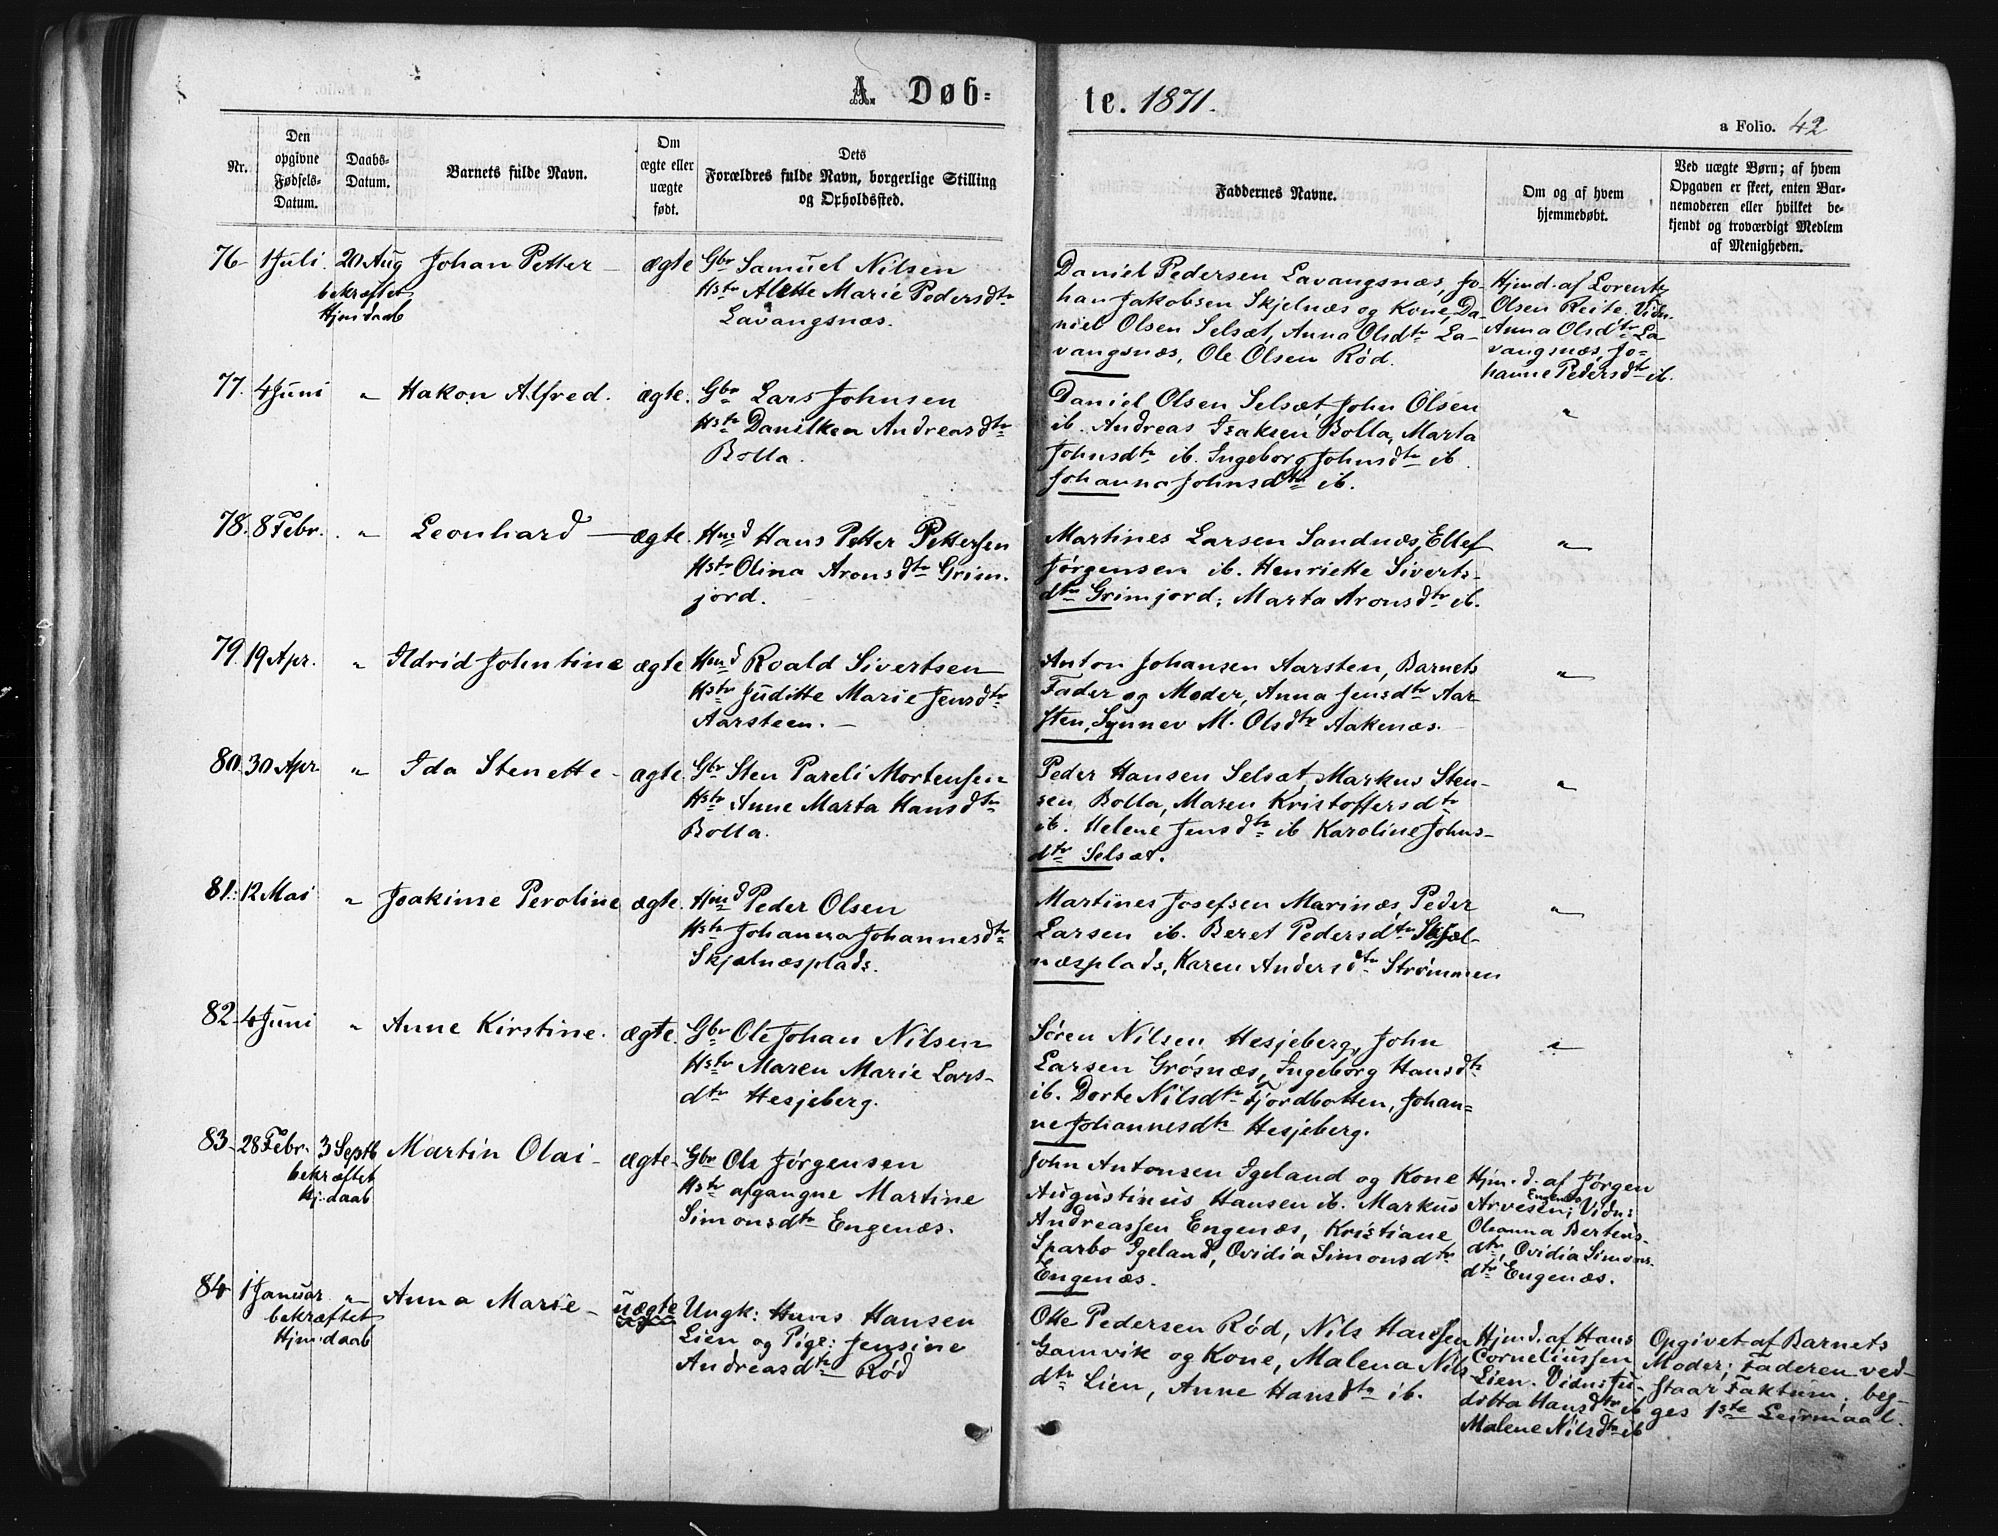 A. Døbte. 1871.
a Folio. 42
Nr.
Den opgivne Fødsels-Datum.
Daabs-Datum.
Barnets fulde Navn.
Om ægte eller uægte født.
Dets Forældres fulde Navn, borgerlige Stilling og Opholdssted.
Faddernes Navne.
Om og af hvem hjemmedøbt.
Ved uægte Børn; af hvem Opgaven er skeet, enten Barnemoderen eller hvilket bekjendt og troværdigt Medlem af Menigheden.
76 1 Juli. 20 Aug Johan Petter — ægte
bekræftet
Hjmdaab
Gbr Samuel Nilsen
Hstr Alette Marie Pedersdtr
Lavangsnæs.
Daniel Pedersen Lavangsnæs, Jo-
han Jakobsen Skjelnæs og Kone, Da-
niel Olsen Selsæt, Anna Olsdtr La-
vangsnæs, Ole Olsen Rød.
Hjmd. af Lorents
Olsen Reite. Vidn.
Anna Olsdtr La-
vangsnæs, Jo-
hanne Pedersdtr ib.
77. 4 Juni " Hakon Alfred. ægte.
Gbr Lars Johnsen
Hstr Danilken Andreasdtr
Bolla.
Daniel Olsen Selsæt, John Olsen
ib. Andreas Isaksen Bolla, Marta
Johnsdtr ib. Ingeborg Johnsdtr ib
Johanna Johnsdtr ib.
"
78. 8 Febr. " Leonhard — ægte.
Hmd Hans Petter Pettersen
Hstr Olina Aronsdtr Grim-
jord.
Martines Larsen Sandnæs, Ellef
Jørgensen ib. Henriette Siverts-
dtr Grimjord, Marta Aronsdtr ib.
"
79. 19 Apr. " Ildrid Johntine ægte
Hmd Roald Sivertsen
Hstr Juditte Marie Jensdtr
Aarsteen. —
Anton Johansen Aarsten, Barnets
Fader og Moder, Anna Jensdtr Aar-
sten, Synnev M. Olsdtr Aakenæs.
"
80. 30 Apr " Ida Stenette — ægte
Gbr Sten Pareli Mortensen
Hstr Anne Marta Hansdtr
Bolla.
Peder Hansen Selsæt, Markus Sten-
sen Bolla, Maren Kristoffersdtr
ib. Helene Jensdtr ib Karoline Johns-
dtr Selsæt.
"
81. 12 Mai " Joakime Peroline ægte.
Hmd Peder Olsen
Hstr Johanna Johannesdtr
Skjelnæsplads.
Martines Josefsen Marinæs, Peder
Larsen ib. Beret Pedersdtr Skjel-
næsplads, Karen Andersdtr Strømmen
"
82. 4 Juni " Anne Kirstine. ægte.
Gbr Ole Johan Nilsen
Hstr Maren Marie Lars-
dtr Hesjeberg.
Søren Nilsen Hesjeberg, John
Larsen Grøsnæs, Ingeborg Hansdtr
ib. Dorte Nilsdtr Fjordbotten, Johan-
ne Johannesdtr Hesjeberg.
"
83. 28 Febr. 3 Septb Martin Olai — ægte.
bekræftet
Hj. daab
Gbr Ole Jørgensen
Hstr afgangne Martine
Simonsdtr Engenæs.
John Antonsen Igeland og Kone
Augustinus Hansen ib. Markus
Andreassen Engenæs, Kristiane
Sparbo Igeland, Ovidia Simonsdtr
Engenæs.
Hjm. d. af Jørgen
Arvesen, Engenæs Vidn:
Olianna Bertens-
dtr, Ovidia Simons-
dtr Engenæs.
84 1 Januar " Anna Marie — uægte
bekræftet
Hjmdaab
Ungk: Hans Hansen
Lien og Pige: Jensine
Andreasdtr Rød
Otte Pedersen Rød, Nils Hansen
Gamvik og Kone, Malena Nils
dtr Lien, Anne Hansdtr ib.
Hjmd. af Hans
Corneliussen
Lien. Vidn: Ju-
ditta Hansdtr ib
Malene Nilsdtr ib
Opgivet af Barnets
Moder; Faderen ved-
staar Faktum; beg-
ges 1ste Leirmaal.